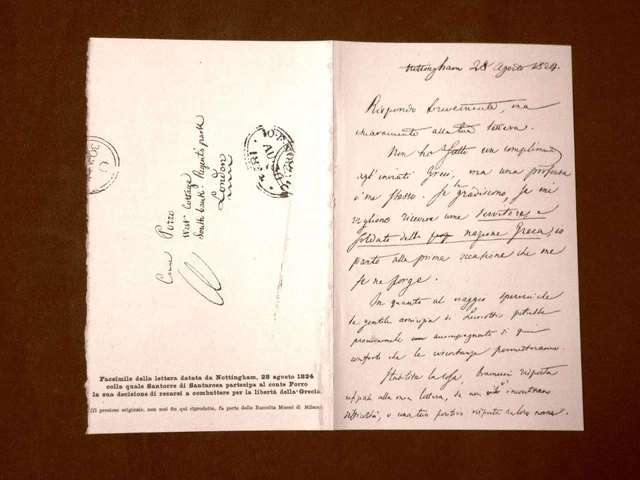 Conte Porro
West Cottage
South bank. Regents park
London
Facsimile della lettera datata da Nottingham, 28 agosto 1824
colla quale Santorre di Santarosa partecipa al conte Porro
la sua decisione di recarsi a combattere per la libertà della Grecia.
(Il prezioso originale, non mai fin qui riprodotto, fa parte della Raccolta Mussi di Milano)
Nottingham 28 Agosto 1824.
Rispondo brevemente, ma
chiaramente alla tua lettera.
Non ho fatto un complimento
agl'inviati Greci, ma una profferta
a me stesso. Se la gradiscono, se mi
vogliono ricevere come servitore e
soldato della nazione Greca, io
parto alla prima occasione che me
se ne porge.
In quanto al viaggio spererei che
la gentile amicizia di potrebbe
procurarmelo accompagnato di quei
conforti che le circostanze permetteranno.
Stabilita la cosa, risposta
alla mia lettera, se non incontrano
difficoltà, o una tua positiva risposta in loro nome.